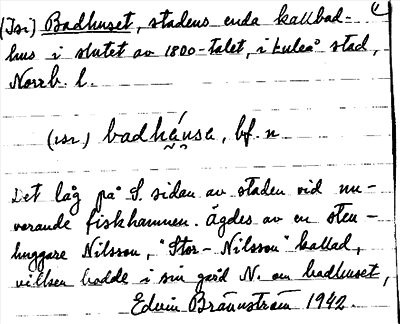 (Isr) Badhuset, stadens enda kallbad-
hus i slutet av 1800-talet, i Luleå stad,
Norrb. l.
(isr) badhúsə, bf. n
Det låg på S. sidan av staden vid nu-
varande fiskhamnen. Ägdes av en sten-
huggare Nilsson, "Stor-Nilsson" kallad,
vilken bodde i sin gård N. om badhuset,
Edvin Brännström 1942.